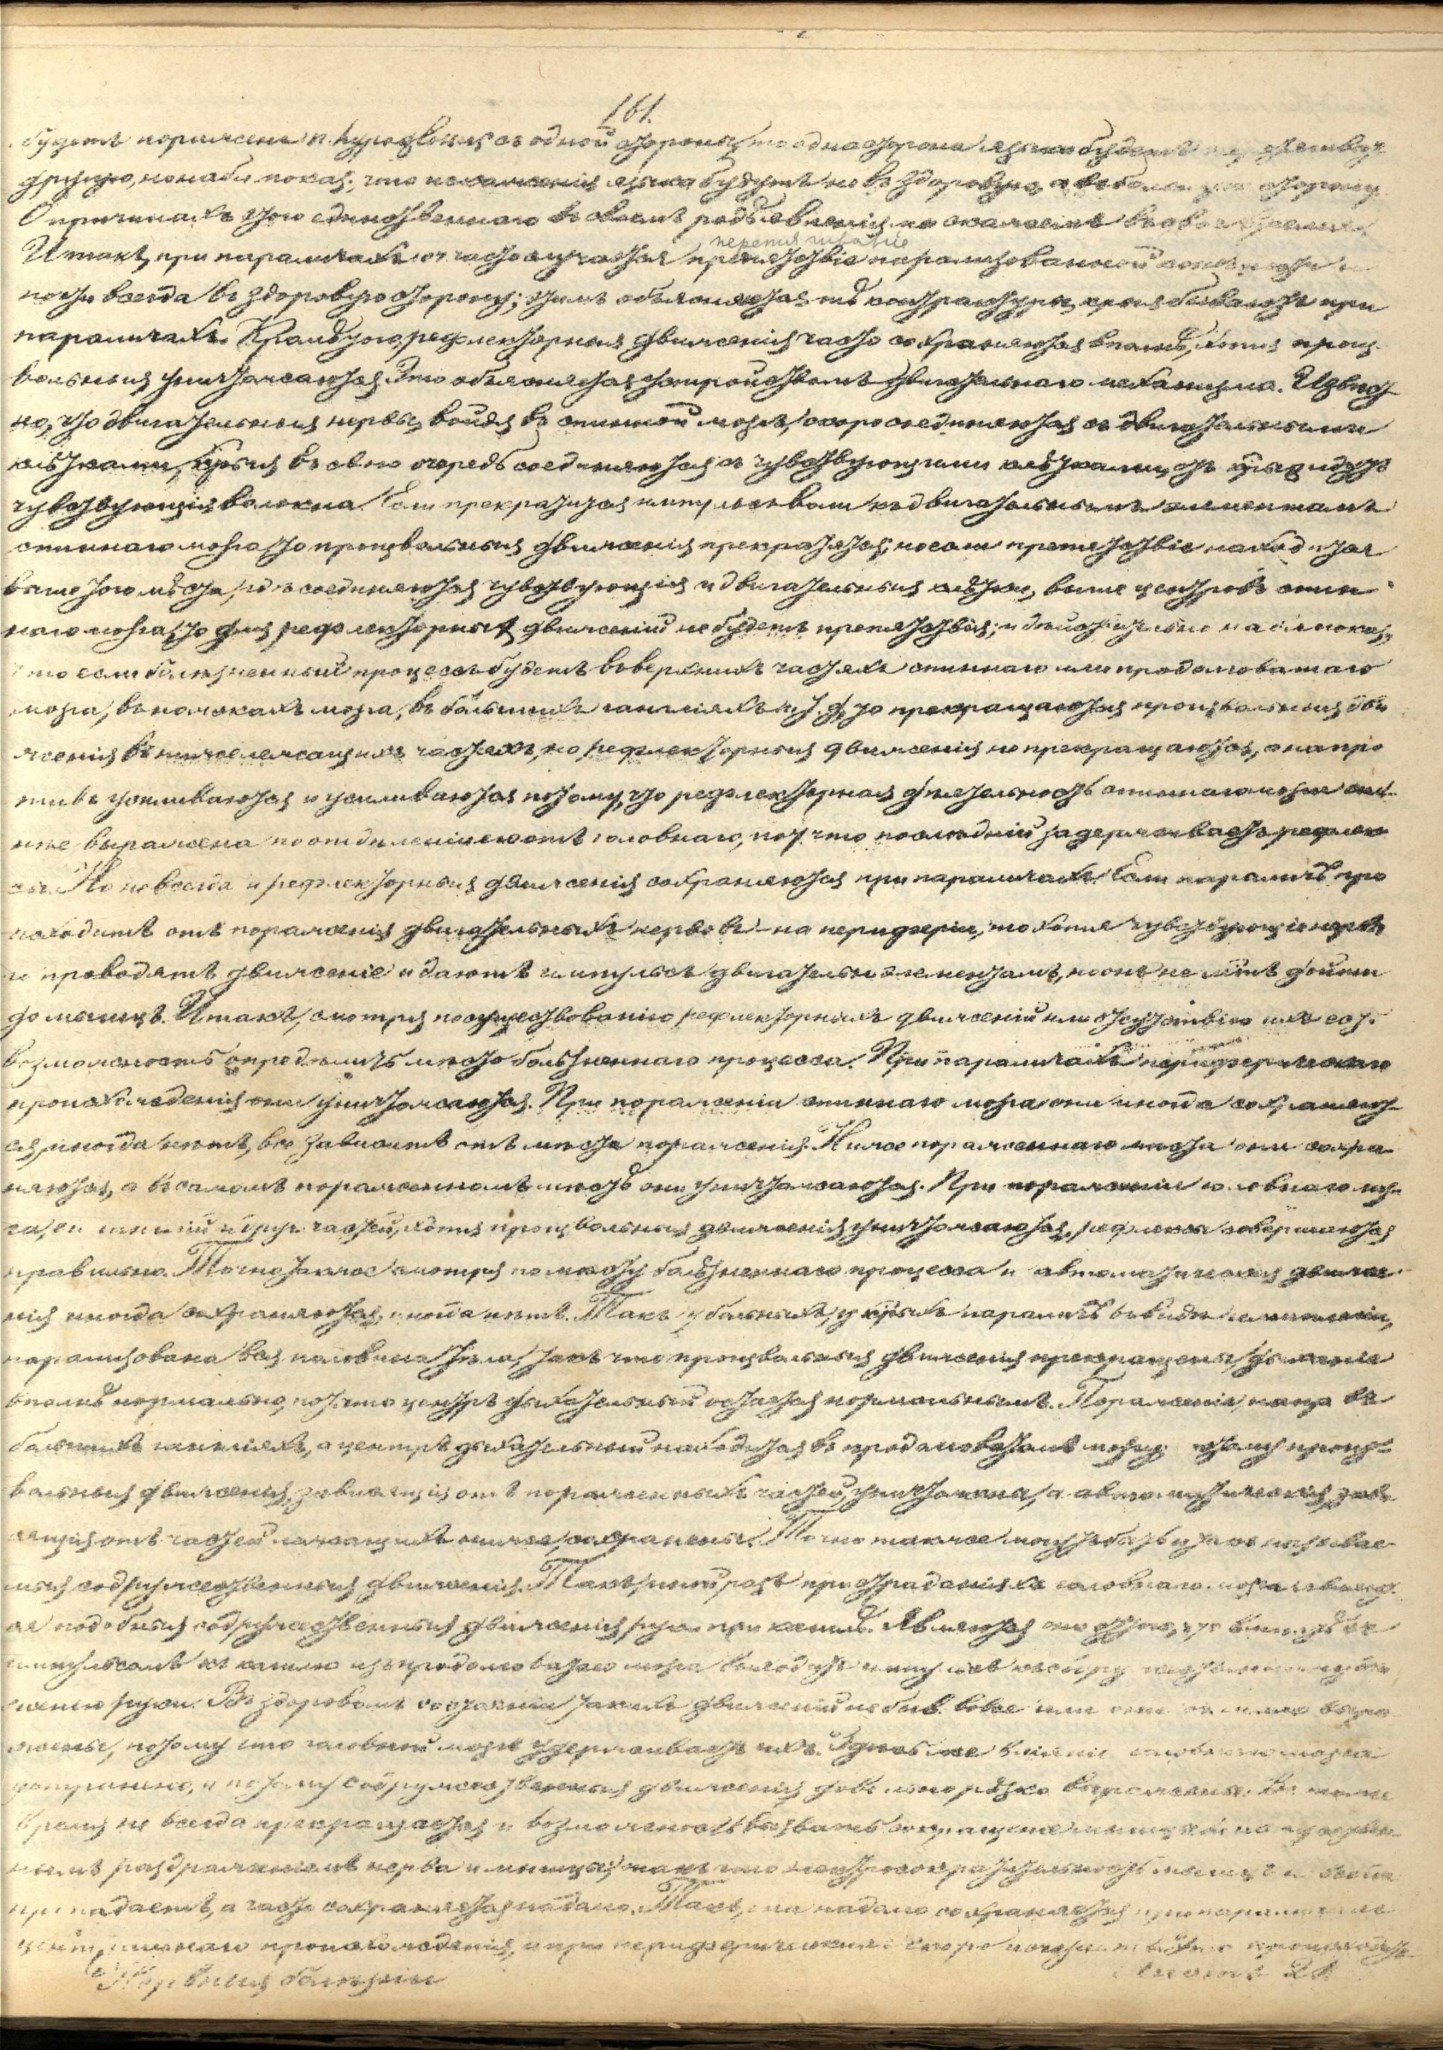 161.
будетъ поражена п. hypoglossus съ одной стороны, то одна сторона языка будетъ
другую, но набл. показ., что искаженія языка будутъ не въ здоровую, а въ больную сторону.
О причинахъ этого единственнаго въ своемъ родѣ явленія не скажемъ въ свое время.
перетягиваніе
Итакъ, при параличахъ часто случается препятствіе парализованной
почти всегда въ здоровую сторону; этимъ объясняются тѣ контрактуры, которыя бываютъ при
параличахъ. Кромѣ того, рефлекторныя движенія часто сохраняются вполнѣ, хотя произ-
вольныя уничтожаются. Это объясняется устройствомъ двигательнаго механизма. Извѣст-
но, что двигательные нервы, войдя въ спинной мозгъ, скоро соединяются съ двигательными
клѣтками, котрыя въ свою очередь соединяются съ чувствующими клѣтками, отъ котрыхъ идутъ
чувствующія волокна. Если прекратится импульсъ воли къ двигательнымъ элементамъ
спиннаго мозга, то произвольныя движенія прекратятся; но если препятствіе находится
выше того мѣста, гдѣ соединяются чувствующія и двигательныя клѣтки, выше центровъ спин-
наго мозга, то для рефлекторныхъ движеній не будетъ препятствія; и дѣйствительно наблю. показ.,
что если болѣзненный процессъ будетъ въ верхнихъ частяхъ спиннаго или продолговатаго
мозга, въ ножкахъ мозга, въ большихъ гангліяхъ и т. д., то прекращаются произвольныя дви
женія въ нижележащихъ частяхъ, но рефлекторныя движенія не прекращаются, а напро
тивъ усиливаются и усиливаются потому, что рефлекторная дѣятельность спиннаго мозга силь
нѣе выражена по отдѣленіи его отъ головнаго, пот. что послѣдній задерживаетъ рефлек
сы. Но не всегда и рефлекторныя движенія сохраняются при параличахъ. Если параличъ про
исходитъ отъ пораженія двигательныхъ нервовъ на периферіи, то хотя чувствующіе нервы
и проводятъ движеніе и даютъ импульсъ двигательн. элементамъ, но онъ не можетъ дойти
до мышцъ. Итакъ, смотря по существованію рефлекторныхъ движеній или отсутствію ихъ есть
возможность опредѣлить мѣсто болѣзненнаго процесса. При параличахъ периферическаго
происхожденія они уничтожаются. При пораженіи спиннаго мозга они иногда сохраняют-
ся, иногда нѣтъ, все зависитъ отъ мѣста пораженія. Ниже пораженнаго мѣста они сохра-
няются, а въ самомъ пораженномъ мѣстѣ они уничтожаются. При пораженіи головнаго моз-
га, и друг. частей, хотя произвольныя движенія уничтожаются, рефлексы совершаются
правильно. Точно также смотря по мѣсту болѣзненнаго процесса и автоматическія движе-
нія иногда сохраняются, иногда нѣтъ. Такъ у больныхъ, у котрыхъ параличъ въ видѣ гемиплегіи,
парализована вся половина тѣла, такъ что произвольныя движенія прекращены, дыханіе
вполнѣ нормально, пот. что центръ дыхательный остается нормальнымъ. Пораженіе напр. въ
большихъ гангліяхъ, а центръ дыхательный находится въ продолговатомъ мозгу потому произ-
вольныя движенія, зависящія отъ пораженныхъ частей, уничтожены, а автоматическія, зави-
сящія отъ частей лежащихъ ниже, сохранены. Точно также могутъ быть и такъ называе-
мыя содружественныя движенія. Такъ, иной разъ при страданіяхъ головнаго мозга
ся подобныя содружественныя движенія руки при кашлѣ. Являются они оттого, что вмѣстѣ съ
импульсомъ къ кашлю изъ продолговатаго мозга выходитъ импульсъ
женію руки. Въ здоровомъ состояніи такихъ движеній не быв. вовсе или они слабо выра
жены, потому что головной мозгъ удерживаетъ ихъ. Здѣсь же вліяніе головнаго мозга
нарушено, и потому содружественныя движенія довольно рѣзко выражены. Въ тоже
время не всегда прекращается и возможность вызвать сокращеніе мышцы непосредствен-
нымъ раздраженіемъ нерва и мышцы, такъ что электросократительность мышцъ не всегда
пропадаетъ, а часто сохраняется надолго. Такъ, она надолго сохраняется при параличахъ
центральнаго происхожденія, а при периферическихъ скоро исчезаетъ
Нервныя болѣзни
Листъ 21